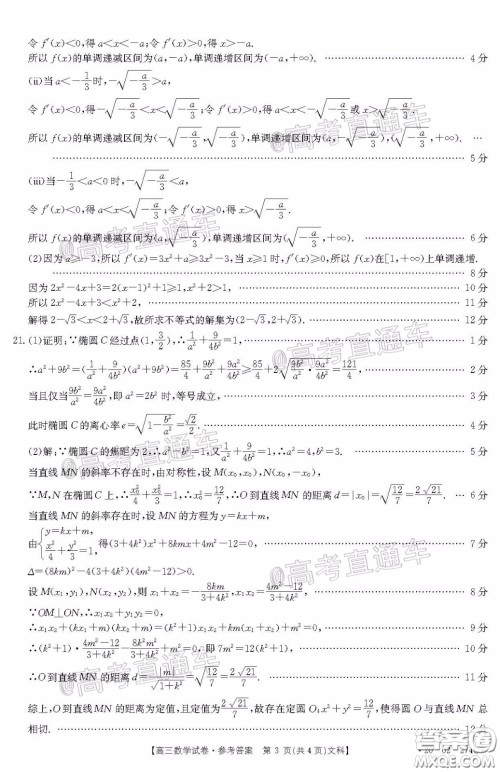 令 f'(x)<0,得 a<x<-a;令 f'(x)>0,得 x>-a.
所以 f(x)的单调递减区间为(a,-a),单调递增区间为(-a,+∞). 4 分
(ii)当 a<-1/3 时,-√(-a/3)>a,
令 f'(x)<0,得-√(-a/3)<x<√(-a/3);令 f'(x)>0,得 a<x<-√(-a/3)或 x>√(-a/3).
所以 f(x)的单调递减区间为(-√(-a/3),√(-a/3)),单调递增区间为(a,-√(-a/3)),(√(-a/3),+∞).
5 分
(iii)当-1/3<a<0 时,-√(-a/3)<a<√(-a/3),
令 f'(x)<0,得 a<x<√(-a/3);令 f'(x)>0,得 x>√(-a/3).
所以 f(x)的单调递减区间为(a,√(-a/3)),单调递增区间为(√(-a/3),+∞). 6 分
(2)因为 a≥-3,所以 f'(x)=3x²+a≥3x²-3,当 x≥1 时,f'(x)≥0,所以 f(x)在[1,+∞)上单调递增.
8 分
因为 2x²-4x+3=2(x-1)²+1≥1,x²+2>1, 10 分
所以 2x²-4x+3<x²+2, 11 分
解得 2-√3<x<2+√3,故所求不等式的解集为(2-√3,2+√3). 12 分
21.(1)证明:∵椭圆 C 经过点(1,3/2),∴1/a²+9/4b²=1, 1 分
∴a²+9b²=(1/a²+9/4b²)(a²+9b²)=85/4+9b²/a²+9a²/4b²≥85/4+2√(9b²/a²·9a²/4b²)=121/4, 2 分
当且仅当9b²/a²=9a²/4b²,即 a²=2b² 时,等号成立, 3 分
此时椭圆 C 的离心率 e=√(1-b²/a²)=√2/2. 4 分
(2)解:∵椭圆 C 的焦距为 2,∴a²-b²=1,又1/a²+9/4b²=1,∴a²=4,b²=3. 5 分
当直线 MN 的斜率不存在时,由对称性,设 M(x₀,x₀),N(x₀,-x₀).
∵M,N 在椭圆 C 上,∴x₀²/4+x₀²/3=1,∴x₀²=12/7,∴O 到直线 MN 的距离 d=|x₀|=√(12/7)=2√21/7. 6 分
当直线 MN 的斜率存在时,设 MN 的方程为 y=kx+m,
由{y=kx+m, x²/4+y²/3=1,得(3+4k²)x²+8kmx+4m²-12=0, 7 分
Δ=(8km)²-4(3+4k²)(4m²-12)>0.
设 M(x₁,y₁),N(x₂,y₂),则 x₁+x₂=-8km/3+4k²,x₁x₂=4m²-12/3+4k². 8 分
∵OM⊥ON,∴x₁x₂+y₁y₂=0,
∴x₁x₂+(kx₁+m)(kx₂+m)=(k²+1)x₁x₂+km(x₁+x₂)+m²=0, 9 分
∴(k²+1)·4m²-12/3+4k²-8k²m²/3+4k²+m²=0,即 7m²=12(k²+1), 10 分
∴O 到直线 MN 的距离 d=|m|/√(1+k²)=√(12/7)=2√21/7. 11 分
综上,O 到直线 MN 的距离为定值,且定值为2√21/7,故存在定圆 O:x²+y²=12/7,使得圆 O 与直线 MN 总
相切. 12 分
【高三数学试卷·参考答案 第 3 页(共 4 页)文科】
@高考直通车
@高考直通车
@高考直通车
@高考直通车